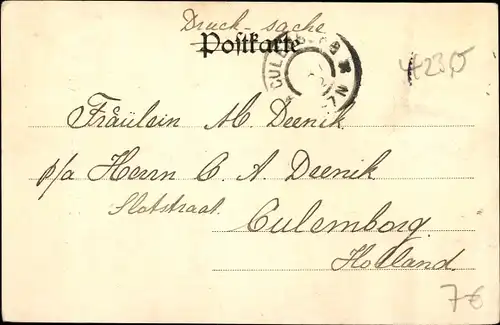 Druck-sache
Postkarte
42315
Fräulein M. Deenik
p/a Herrn C. A. Deenik
Slotstraat.
Culemborg.
Holland.
7€